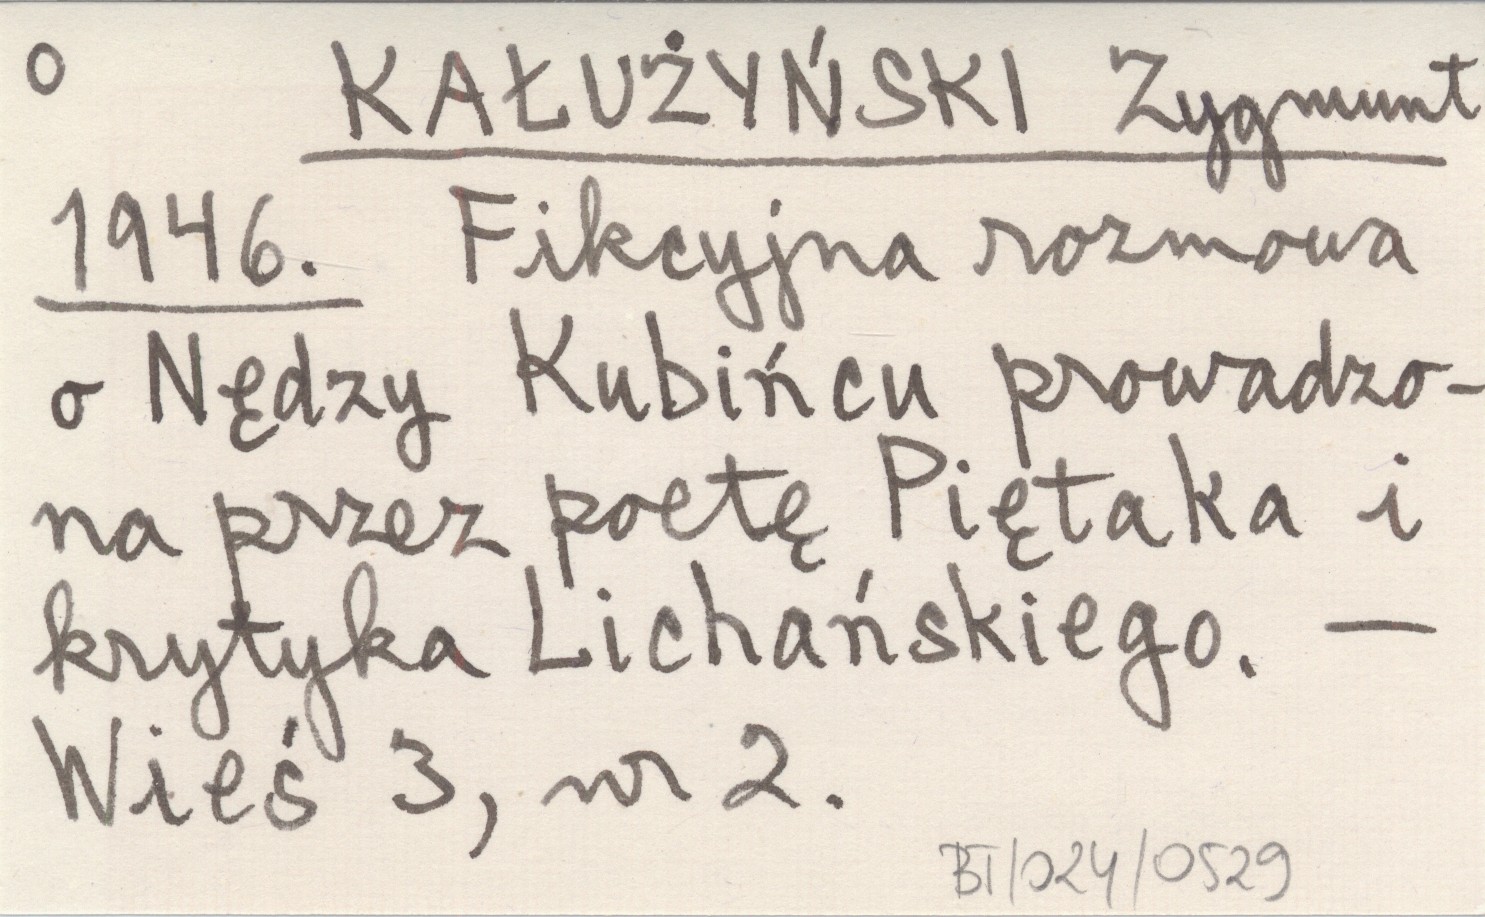 o KAŁUŻYŃSKI Zygmunt
1946. Fikcyjna rozmowa
o Nędzy Kubińcu prowadzo-
na przez poetę Piętaka i
krytyka Lichańskiego. —
Wieś 3, nr 2.
BT/024/0529